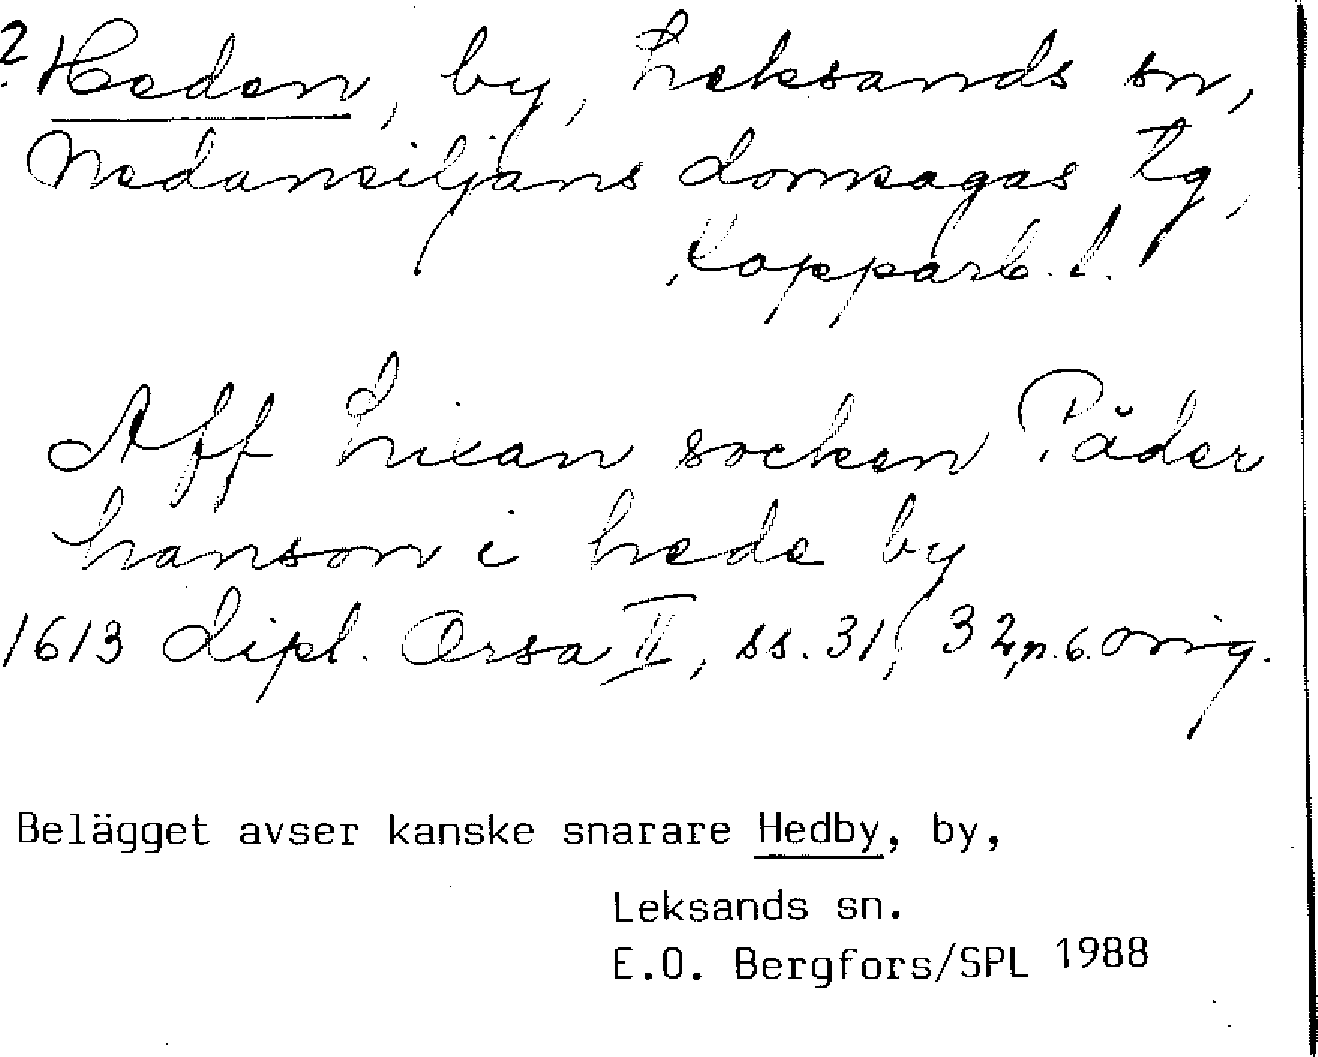 ? Heden, by, Leksands sn,
Nedansiljans domsagas tg,
Kopparb. l.
Aff Lixan socken Päder
hanson i hede by
1613 Dipl. Orsa II, ss. 31, 32, p. 6. orig.
Belägget avser kanske snarare Hedby, by,
Leksands sn.
E.O. Bergfors/SPL 1988